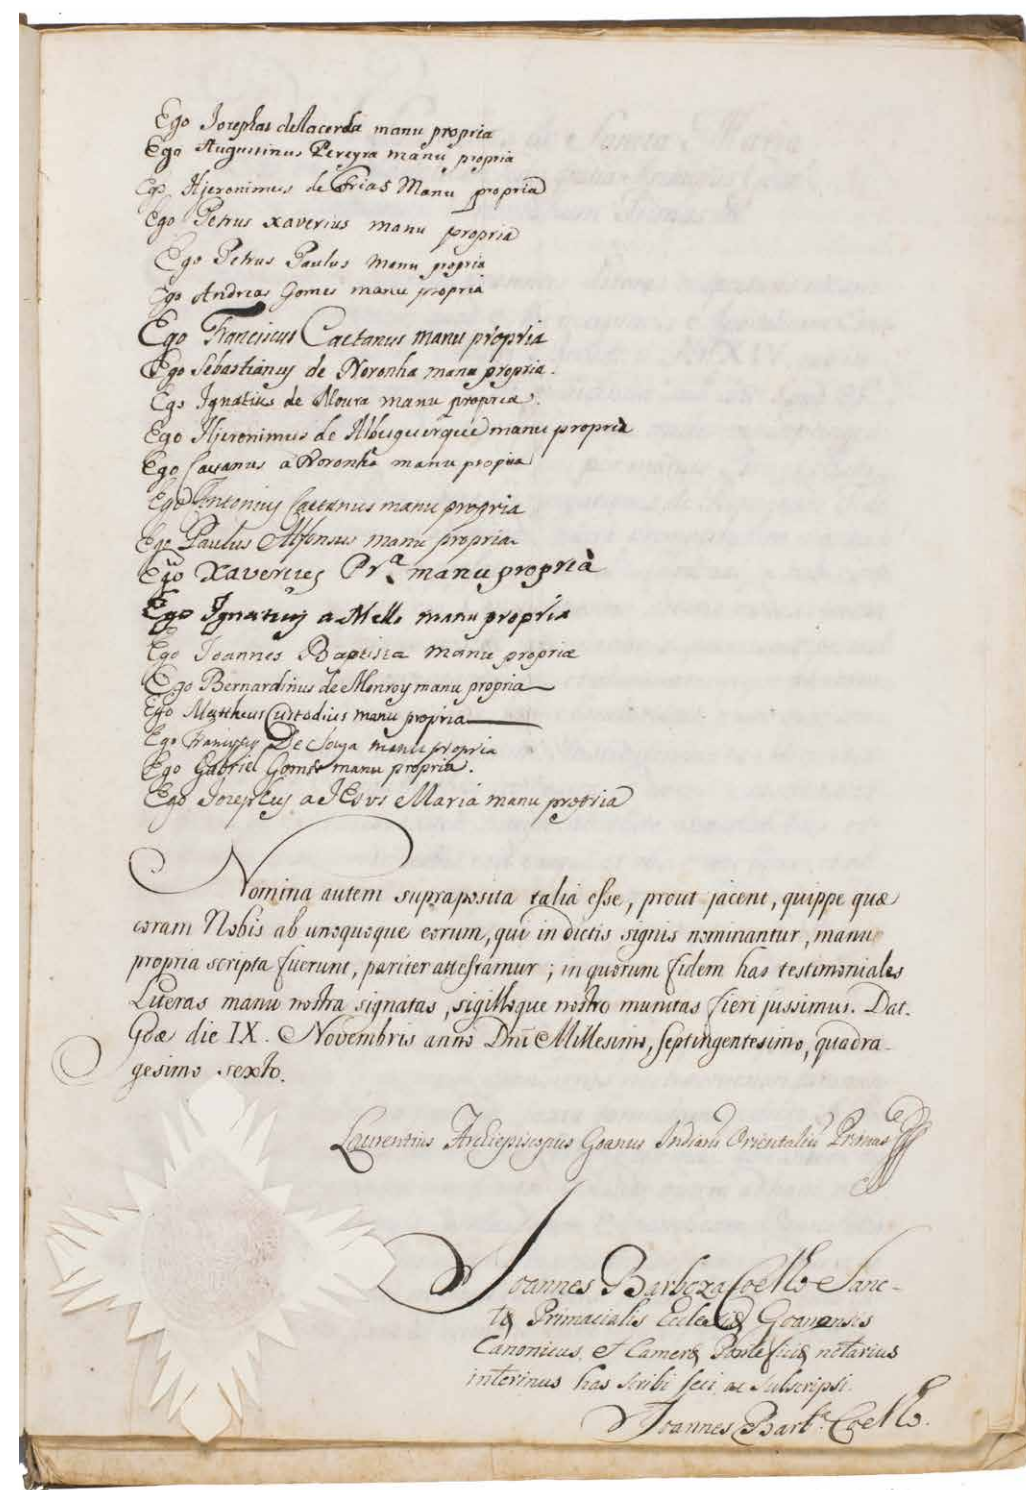 Ego Josephus de Lacerda manu propria
Ego Augustinus Pereyra manu propria
Ego Hjeronimus de Frias Manu propria
Ego Petrus Xaverius manu propria
Ego Petrus Paulus Manu propria
Ego Andreas Gomes manu propria
Ego Franciscus Caetanus manu propria
Ego Sebastianus de Noronha manu propria.
Ego Ignatius de Moura manu propria.
Ego Hjeronimus de Albuquerque manu propria
Ego Caetanus a Noronha manu propria
Ego Antonius Caetanus manu propria
Ego Paulus Alfonsus manu propria
Ego Xaverius Pr.ª manu propria
Ego Ignatius a Mello manu propria
Ego Joannes Baptista manu propria
Ego Bernardinus de Monroy manu propria
Ego Mattheus Custodius manu propria
Ego Franciscus De Souza manu propria
Ego Gabriel Gomes manu propria.
Ego Josephus a JEsus Maria manu propria
Nomina autem supraposita talia esse, prout jacent, quippe quæ
coram Nobis ab unoquoque eorum, qui in dictis signis nominantur, manu
propria scripta fuerunt, pariter attestamur; in quorum fidem has testimoniales
Literas manu nostra signatas, sigilloque nostro munitas fieri jussimus. Dat.
Goæ die IX. Novembris anno Dnī Millesimo, septingentesimo, quadra-
gesimo sexto.
Laurentius Archiepiscopus Goanus Indiarū Orientaliū Primas
Joannes Barboza Coello Sanc-
tæ Primacialis Ecclesiæ Goanensis
Canonicus, et Cameræ Pontificiæ notarius
interinus has scribi feci ac subscripsi.
Joannes Barb.ª Coello.